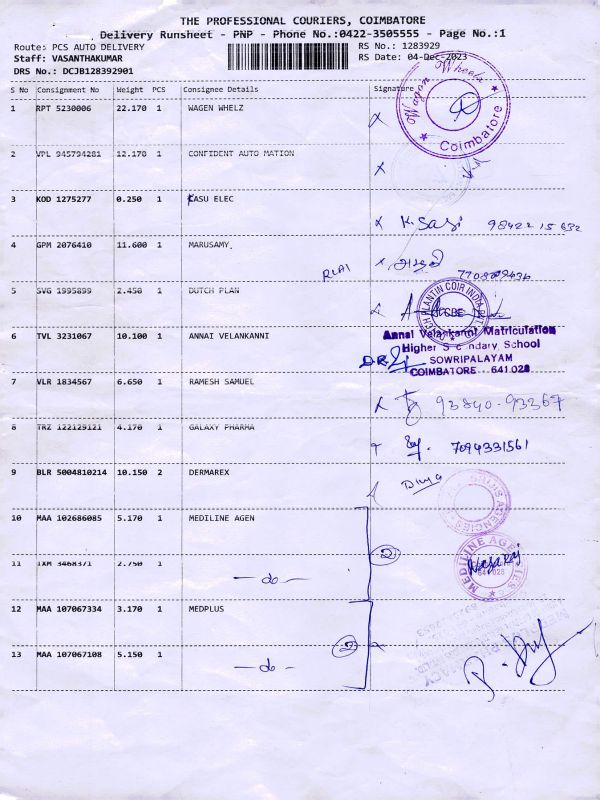 THE PROFESSIONAL COURIERS, COIMBATORE
Delivery Runsheet - PNP - Phone No.:0422-3505555 - Page No.:1
Route: PCS AUTO DELIVERY
Staff: VASANTHAKUMAR
DRS No.: DCJB128392901
RS No.: 1283929
RS Date: 04-Dec-2023
S No Consignment No Weight PCS Consignee Details Signature
1 RPT 5230006 22.170 1 WAGEN WHELZ
Wagon Wheels
Coimbatore
2 VPL 945794281 12.170 1 CONFIDENT AUTO MATION
3 KOD 1275277 0.250 1 KASU ELEC
98422 15 632
4 GPM 2076410 11.600 1 MARUSAMY.
5 SVG 1995899 2.450 1 DUTCH PLAN
DUTCH PLANTIN COIR INDIA PVT.
6 TVL 3231067 10.100 1 ANNAI VELANKANNI
Annai Velankanni Matriculation
Higher Secondary School
SOWRIPALAYAM
COIMBATORE 641 028
7 VLR 1834567 6.650 1 RAMESH SAMUEL
93840-93367
8 TRZ 122129121 4.170 1 GALAXY PHARMA
7094331561
9 BLR 5004810214 10.150 2 DERMAREX
Divya
10 MAA 102686085 5.170 1 MEDILINE AGEN
11 IXM 3468371 2.750 1 — do —
2
MEDILINE AGENCIES
641 028
12 MAA 107067334 3.170 1 MEDPLUS
2
13 MAA 107067108 5.150 1 — do —